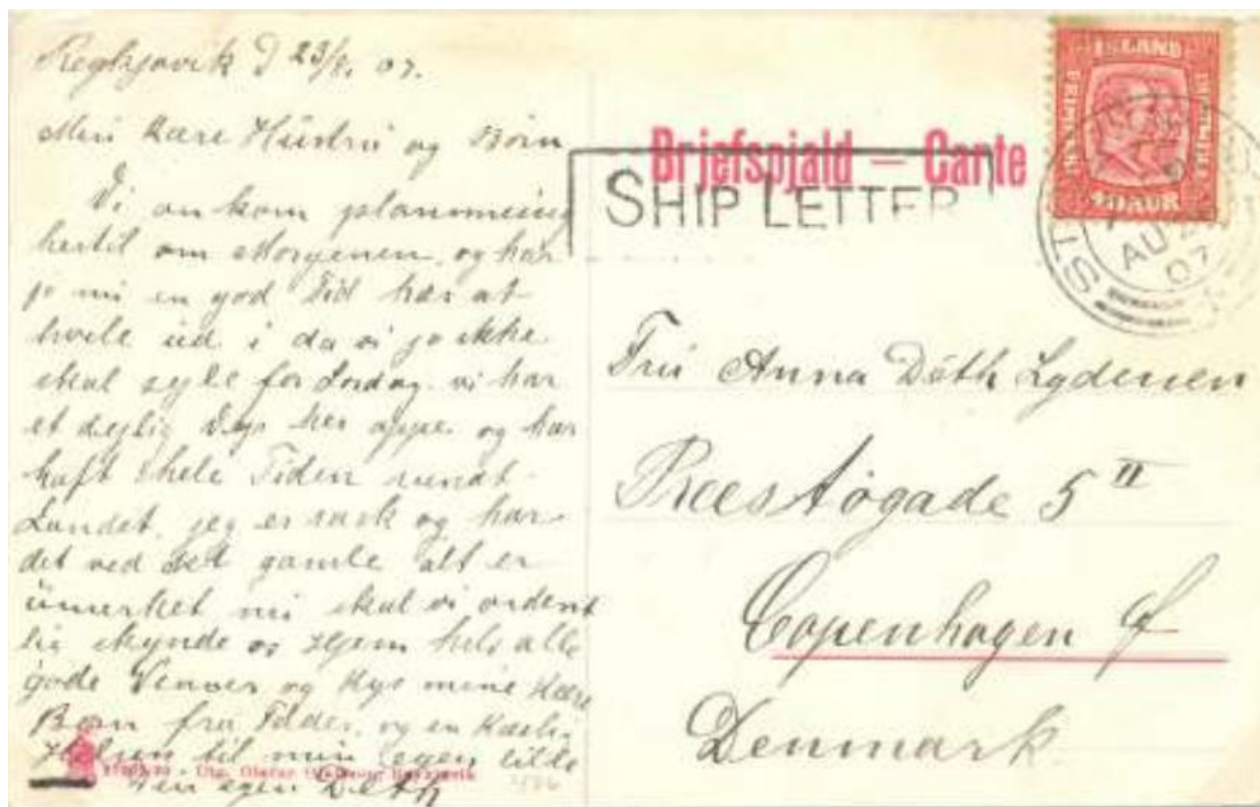 Reykjavik d 23/8. 07.
Min Kære Hustru og Börn
Vi ankom planmæsig
hertil om Morgenen, og har
jo nu en god Tid her at
hvile ud i da vi jo ikke
skal sejle før Lørdag. vi har
et dejlig Vejr her oppe og har
haft hele Tiden rundt
Landet, jeg er rask og har
det ved det gamle alt er
nu skal vi ordent
lig skynde os Hjem hils alle
gode Venner og Kys mine Kære
Børn fra Fader, og en Kærlig
Hilsen til min egen lille
Din egen Deth
Brjefspjald — Carte
SHIP LETTER
ISLAND
AUR
AU
07
Frú Anna Deth Lydersen
Præstøgade 5 II
Copenhagen Ø
Denmark
Reykjavik